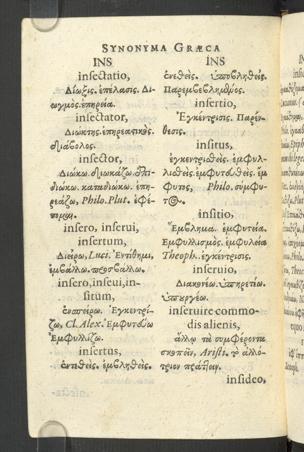 SYNONYMA GRÆCA
INS
insectatio,
Δίωξις. ἐπέλασις. Δι-
ωγμὸς. ἐπηρεία.
insectator,
Διώκτης. ἐπηρεαστικὸς.
διάβολος.
insector,
Διώκω. διωκάζω. ἐπι-
διώκω. καταδιώκω. ἐπη-
ρεάζω, Philo. Plut. ἐφέ-
insero, inserui,
insertum,
Διείρω, Luci. Ἐντίθημι,
ἐμβάλλω. προσβάλλω.
insero, inseui, in-
situm,
ἐνσπείρω. Ἐγκεντρί-
ζω, Cl. Alex. Ἐμφυτεύω
Ἐμφυλλίζω.
insertus,
ἐντεθεὶς. ἐμβληθείς.
INS
ἐνεθείς. ὑποβληθείς.
Παρεμβεβλημένος.
insertio,
Ἔγκεντρισις. Παρέν-
θεσις.
insitus,
ἐγκεντρισθεὶς. ἐμφυλ-
λισθείς. ἐμφυτευθείς. ἐμ-
φυτος, Philo. σύμφυ-
τος.
insitio,
Ἔμβλημα. ἐμφυτεία.
Ἐμφυλλισμός. ἐμφυλεία
Theoph. ἐγκέντρισις.
inseruio,
Διακονέω. ὑπηρετέω.
ὑπεργέω.
inseruire commo-
dis alienis,
ἄλλῳ τὸ συμφέροντα
σκοπεῖν, Arist. τὸ ἀλλό-
τριον πράττειν.
insideo,